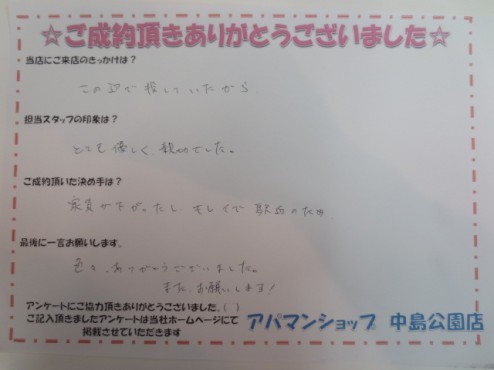 ☆ご成約頂きありがとうございました☆
当店にご来店のきっかけは?
この辺で探していたから
担当スタッフの印象は?
とても優しく、親切でした。
ご成約頂いた決め手は?
家賃が下がったし、キレイで駅近のため
最後に一言お願いします。
色々、ありがとうございました。
また、お願いします!
アンケートにご協力頂きありがとうございました。(^^)
ご記入頂きましたアンケートは当社ホームページにて
掲載させていただきます
アパマンショップ 中島公園店